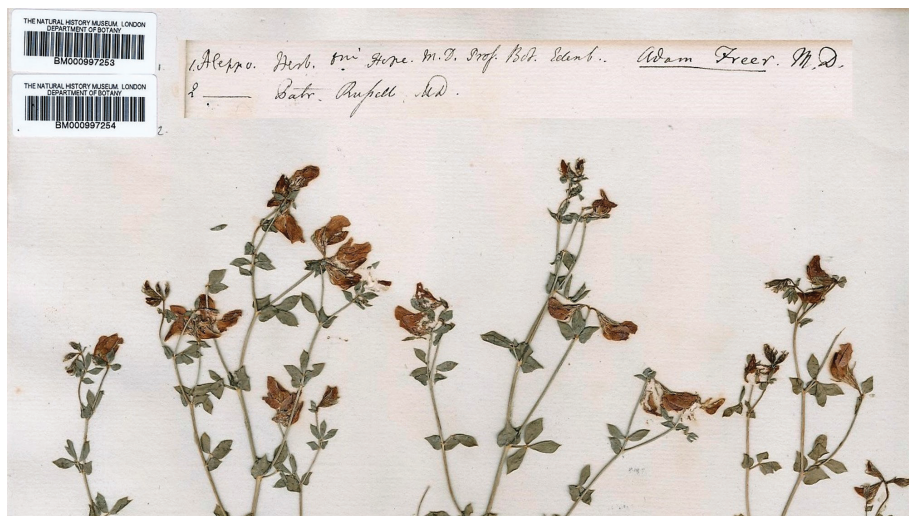 THE NATURAL HISTORY MUSEUM, LONDON
DEPARTMENT OF BOTANY
BM000997253
THE NATURAL HISTORY MUSEUM, LONDON
DEPARTMENT OF BOTANY
BM000997254
1.
2.
1. Aleppo. Herb. Hope. M.D. Prof. Bot. Edinb.. Adam Freer. M.D.
2 —— Patr. Rufsell. MD.